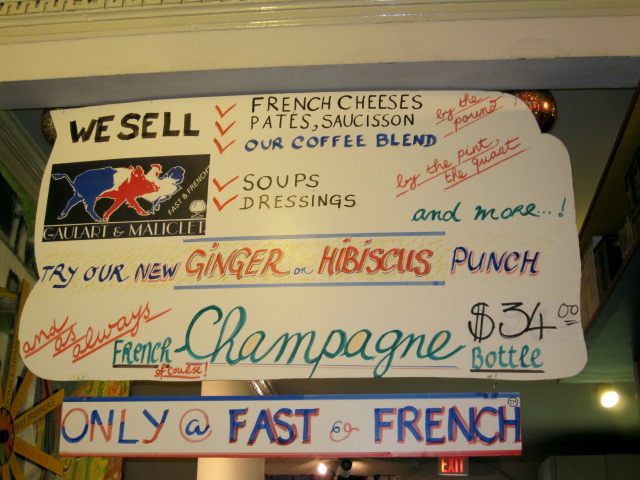 WE SELL
FRENCH CHEESES
PATES, SAUCISSON
by the pound
OUR COFFEE BLEND
by the pint, the quart
SOUPS
DRESSINGS
FAST & FRENCH
GAULART & MALICLET
and more...!
TRY OUR NEW GINGER or HIBISCUS PUNCH
and as always
FRENCH Champagne $34.00
of course! Bottle
ONLY @ FAST & FRENCH TM
EXIT